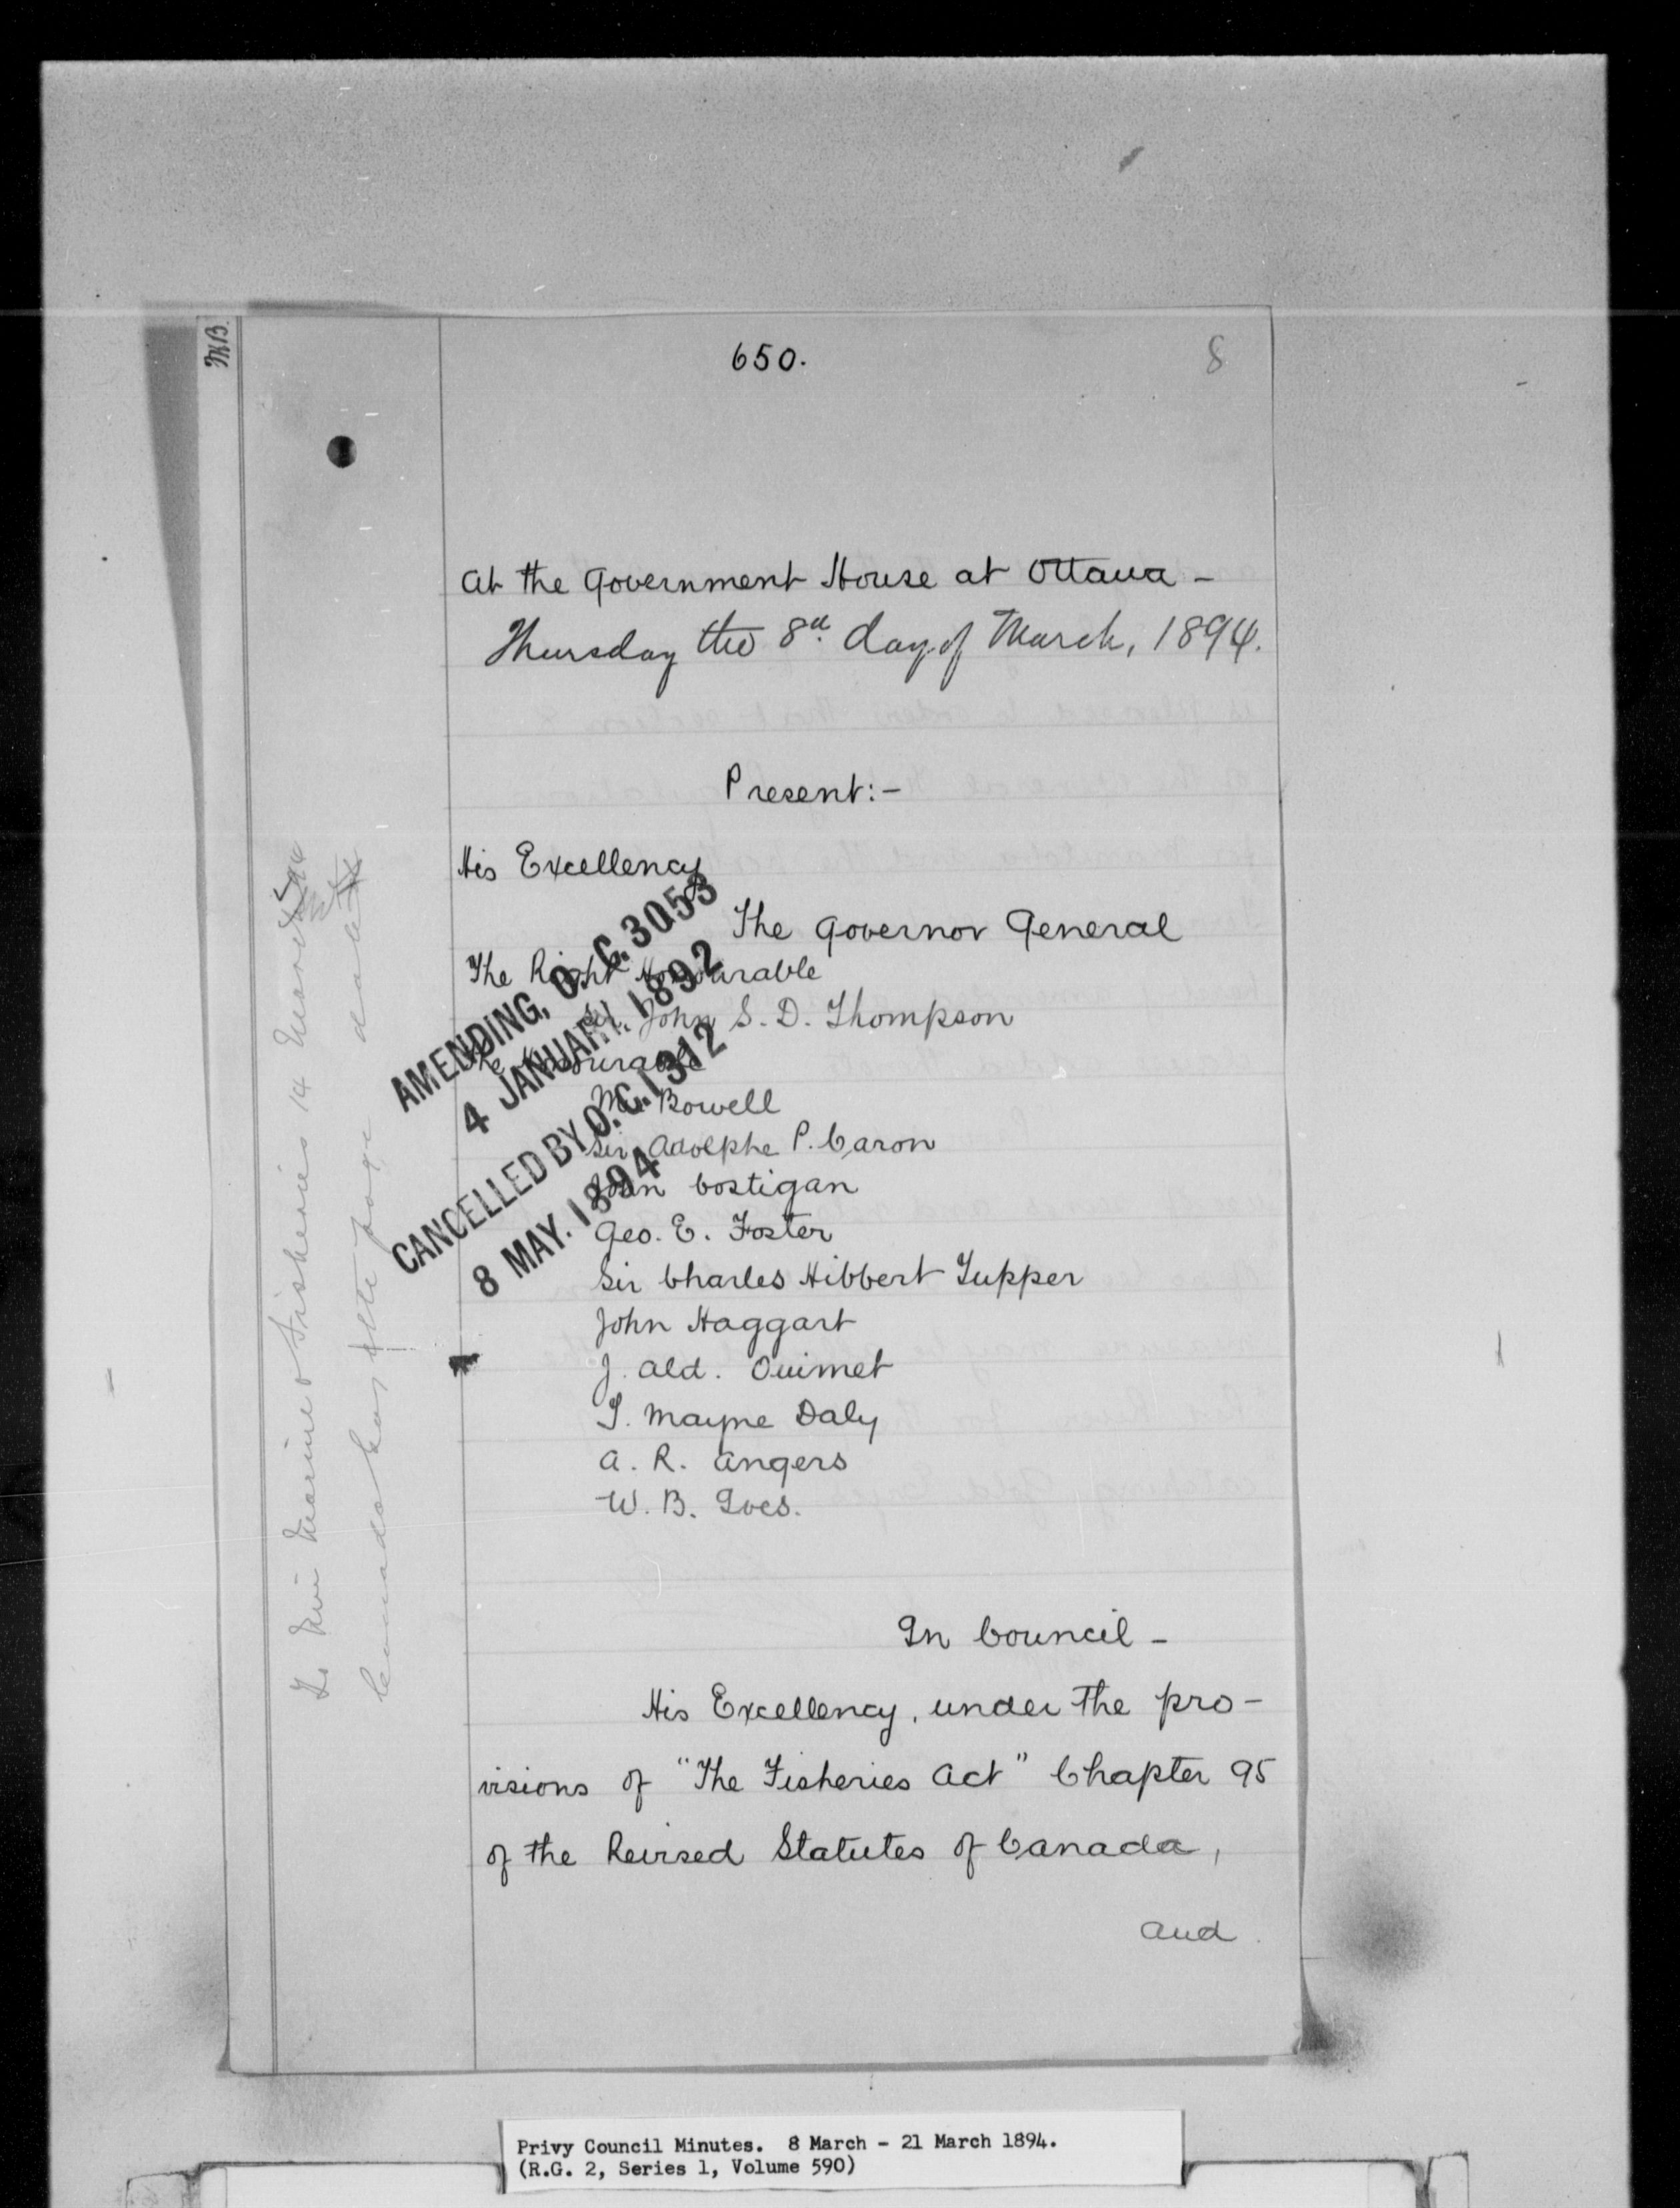 M.B.
650.
8
At the Government House at Ottawa -
Thursday the 8th day of March, 1894.
Present:-
His Excellency
The Governor General
The Right Honourable
Sir John S. D. Thompson
The Honourable
Mr Bowell
Sir Adolphe P. Caron
John Costigan
Geo. E. Foster
Sir Charles Hibbert Tupper
John Haggart
J. Ald. Ouimet
T. Mayne Daly
A. R. Angers
W. B. Ives.
AMENDING, O.C. 3053
4 JANUARY. 1892
CANCELLED BY O.C. 1312
8 MAY. 1894
To Min Marine & Fisheries 14 March
Canada Gaz date
In Council -
His Excellency, under the pro-
visions of "The Fisheries Act" Chapter 95
of the Revised Statutes of Canada,
and
Privy Council Minutes. 8 March - 21 March 1894.
(R.G. 2, Series 1, Volume 590)